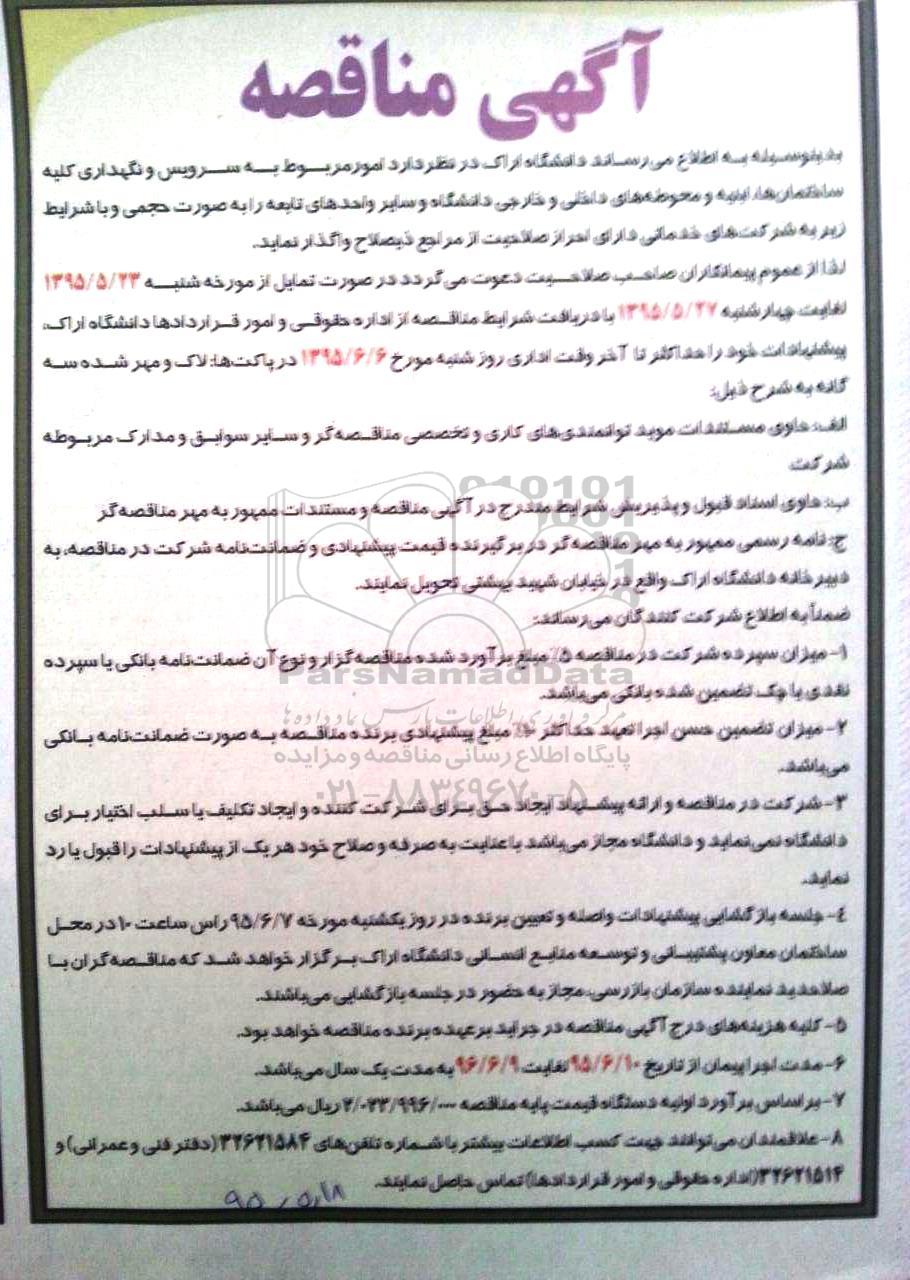 آگهی مناقصه
بدینوسیله به اطلاع می‌رساند دانشگاه اراک در نظر دارد امور مربوط به سرویس و نگهداری کلیه
ساختمان‌ها، ابنیه و محوطه‌های داخلی و خارجی دانشگاه و سایر واحدهای تابعه را به صورت حجمی و با شرایط
زیر به شرکت‌های خدماتی دارای احراز صلاحیت از مراجع ذیصلاح واگذار نماید.
لذا از عموم پیمانکاران صاحب صلاحیت دعوت می‌گردد در صورت تمایل از مورخه شنبه ۱۳۹۵/۵/۲۳
لغایت چهارشنبه ۱۳۹۵/۵/۲۷ با دریافت شرایط مناقصه از اداره حقوقی و امور قراردادها دانشگاه اراک،
پیشنهادات خود را حداکثر تا آخر وقت اداری روز شنبه مورخ ۱۳۹۵/۶/۶ در پاکت‌ها: لاک و مهر شده سه
گانه به شرح ذیل:
الف: حاوی مستندات موید توانمندی‌های کاری و تخصصی مناقصه‌گر و سایر سوابق و مدارک مربوطه
شرکت
ب: حاوی اسناد قبول و پذیرش شرایط مندرج در آگهی مناقصه و مستندات ممهور به مهر مناقصه‌گر
ج: نامه رسمی ممهور به مهر مناقصه‌گر در بر گیرنده قیمت پیشنهادی و ضمانت‌نامه شرکت در مناقصه، به
دبیرخانه دانشگاه اراک واقع در خیابان شهید بهشتی تحویل نمایند.
ضمناً به اطلاع شرکت کنندگان می‌رساند:
۱- میزان سپرده شرکت در مناقصه ۵٪ مبلغ برآورد شده مناقصه‌گزار و نوع آن ضمانت‌نامه بانکی یا سپرده
نقدی یا چک تضمین شده بانکی می‌باشد.
ParsNamadData
مرکز فرآوری اطلاعات پارس نماد داده‌ها
۲- میزان تضمین حسن اجرا تعهد حداکثر ۱۰٪ مبلغ پیشنهادی برنده مناقصه به صورت ضمانت‌نامه بانکی
می‌باشد.
پایگاه اطلاع رسانی مناقصه و مزایده
۰۲۱-۸۸۳۴۹۶۷۰-۵
۳- شرکت در مناقصه و ارائه پیشنهاد ایجاد حق برای شرکت کننده و ایجاد تکلیف یا سلب اختیار برای
دانشگاه نمی‌نماید و دانشگاه مجاز می‌باشد با عنایت به صرفه و صلاح خود هر یک از پیشنهادات را قبول یا رد
نماید.
۴- جلسه بازگشایی پیشنهادات واصله و تعیین برنده در روز یکشنبه مورخه ۹۵/۶/۷ راس ساعت ۱۰ در محل
ساختمان معاون پشتیبانی و توسعه منابع انسانی دانشگاه اراک برگزار خواهد شد که مناقصه‌گران با
صلاحدید نماینده سازمان بازرسی، مجاز به حضور در جلسه بازگشایی می‌باشند.
۵- کلیه هزینه‌های درج آگهی مناقصه در جراید برعهده برنده مناقصه خواهد بود.
۶- مدت اجرا پیمان از تاریخ ۹۵/۶/۱۰ لغایت ۹۶/۶/۹ به مدت یک سال می‌باشد.
۷- بر اساس برآورد اولیه دستگاه قیمت پایه مناقصه ۲/۰۲۳/۹۹۶/۰۰۰ ریال می‌باشد.
۸- علاقمندان می‌توانند جهت کسب اطلاعات بیشتر با شماره تلفن‌های ۳۲۶۲۱۵۸۴ (دفتر فنی و عمرانی) و
۳۲۶۲۱۵۱۴ (اداره حقوقی و امور قراردادها) تماس حاصل نمایند.